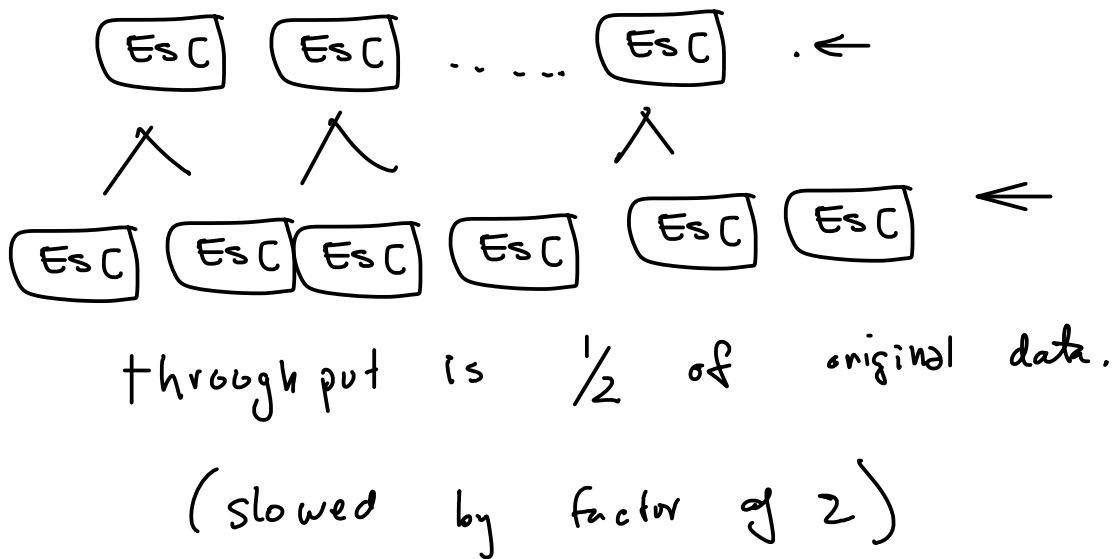 EsC EsC ...... EsC . ←
EsC EsC EsC EsC EsC EsC ←
throughput is 1/2 of original data.
(slowed by factor of 2)